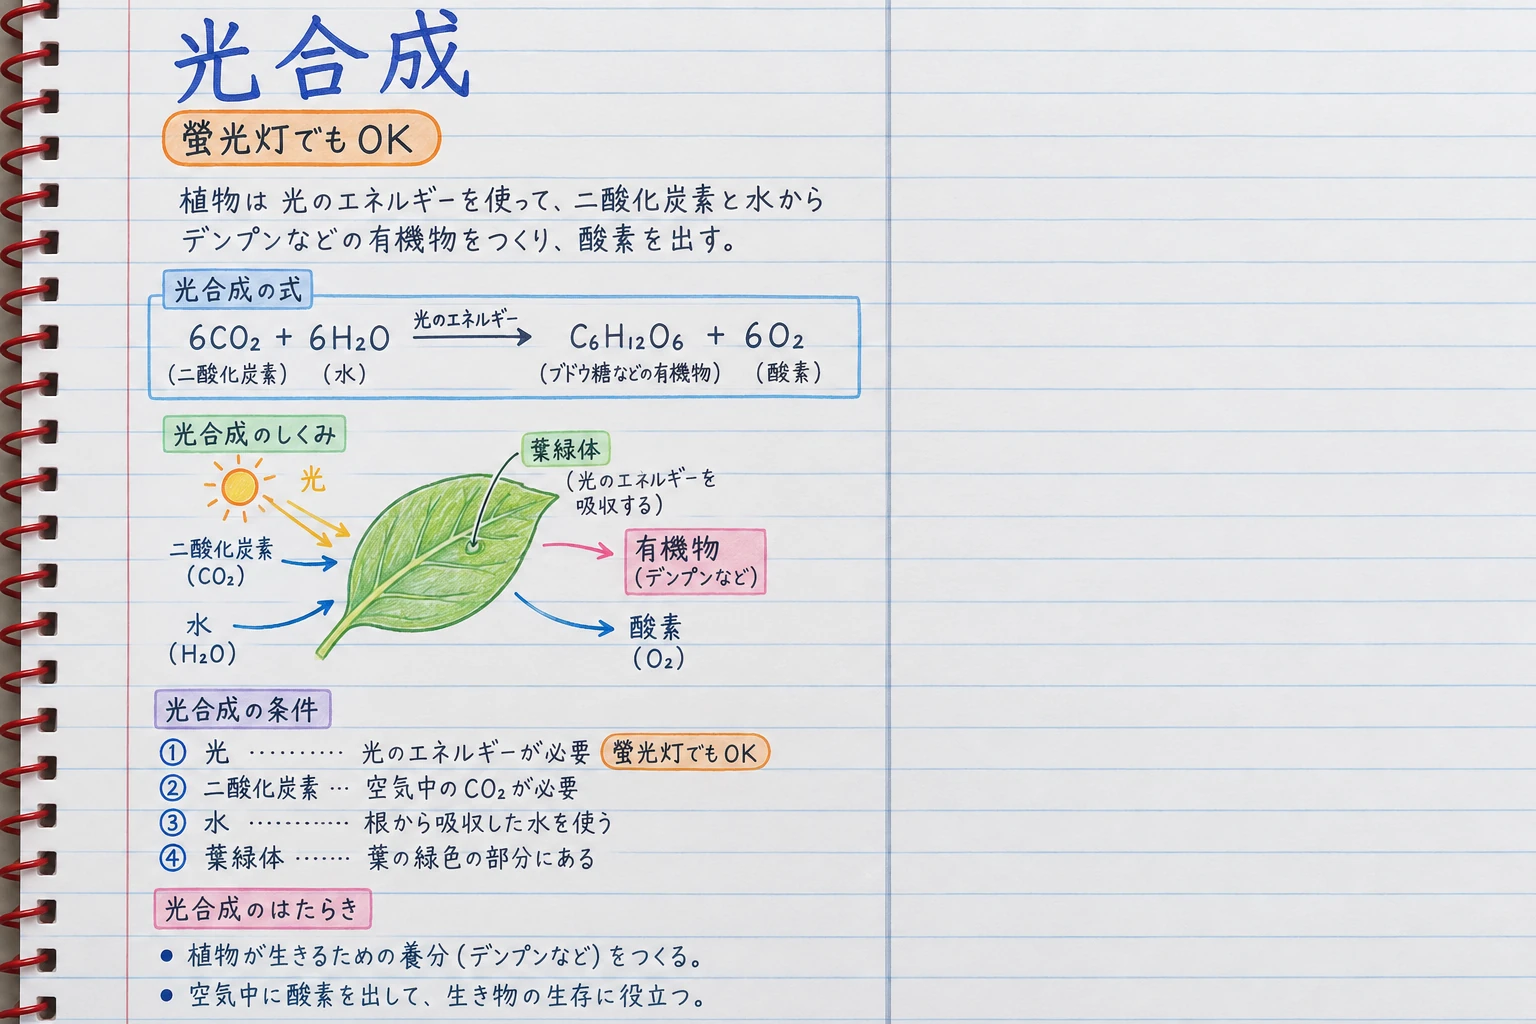 光合成
螢光灯でもOK
植物は 光のエネルギーを使って、二酸化炭素と水から
デンプンなどの有機物をつくり、酸素を出す。
光合成の式
6CO₂ + 6H₂O 光のエネルギー → C₆H₁₂O₆ + 6O₂
(二酸化炭素) (水) (ブドウ糖などの有機物) (酸素)
光合成のしくみ
光
葉緑体
(光のエネルギーを
吸収する)
二酸化炭素
(CO₂)
水
(H₂O)
有機物
(デンプンなど)
酸素
(O₂)
光合成の条件
① 光 ·········· 光のエネルギーが必要 螢光灯でもOK
② 二酸化炭素 ··· 空気中のCO₂が必要
③ 水 ··········· 根から吸収した水を使う
④ 葉緑体 ······· 葉の緑色の部分にある
光合成のはたらき
● 植物が生きるための養分(デンプンなど)をつくる。
● 空気中に酸素を出して、生き物の生存に役立つ。